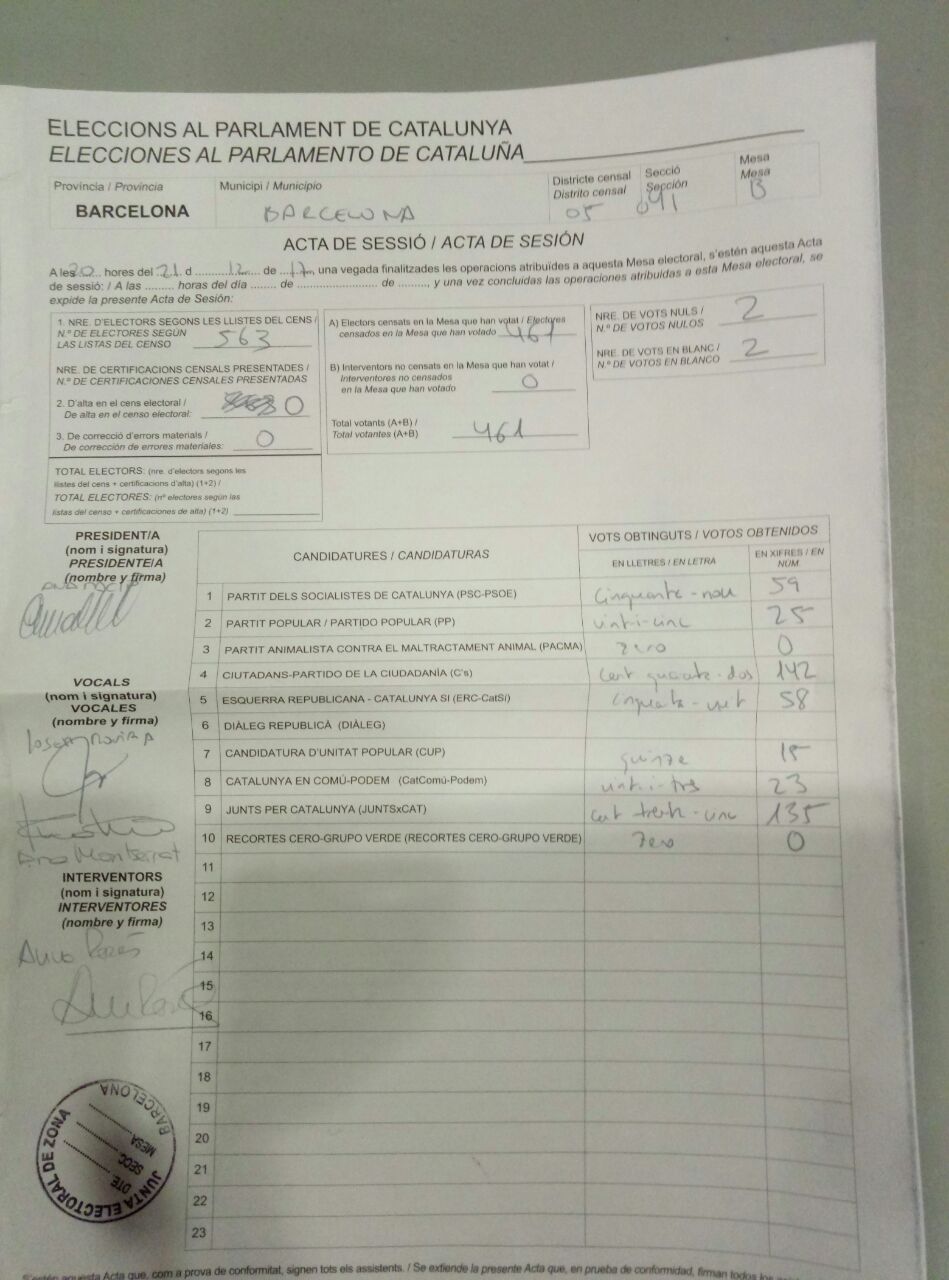 ELECCIONS AL PARLAMENT DE CATALUNYA
ELECCIONES AL PARLAMENTO DE CATALUÑA
Província / Provincia
BARCELONA
Municipi / Municipio
BARCELONA
Districte censal
Distrito censal
05
Secció
Sección
041
Mesa
Mesa
B
ACTA DE SESSIÓ / ACTA DE SESIÓN
A les 20 hores del 21 d 12 de 17 una vegada finalitzades les operacions atribuïdes a aquesta Mesa electoral, s'estén aquesta Acta
de sessió: / A las ......... horas del día ........ de ........................ de ........., y una vez concluidas las operaciones atribuidas a esta Mesa electoral, se
expide la presente Acta de Sesión:
1. NRE. D'ELECTORS SEGONS LES LLISTES DEL CENS /
N.º DE ELECTORES SEGÚN
LAS LISTAS DEL CENSO 563
NRE. DE CERTIFICACIONS CENSALS PRESENTADES /
N.º DE CERTIFICACIONES CENSALES PRESENTADAS
2. D'alta en el cens electoral /
De alta en el censo electoral: 0
3. De correcció d'errors materials /
De corrección de errores materiales: 0
TOTAL ELECTORS: (nre. d'electors segons les
llistes del cens + certificacions d'alta) (1+2) /
TOTAL ELECTORES: (nº electores según las
listas del censo + certificaciones de alta) (1+2)
A) Electors censats en la Mesa que han votat / Electores
censados en la Mesa que han votado 461
B) Interventors no censats en la Mesa que han votat /
Interventores no censados
en la Mesa que han votado 0
Total votants (A+B) /
Total votantes (A+B) 461
NRE. DE VOTS NULS /
N.º DE VOTOS NULOS 2
NRE. DE VOTS EN BLANC /
N.º DE VOTOS EN BLANCO 2
PRESIDENT/A
(nom i signatura)
PRESIDENTE/A
(nombre y firma)
VOCALS
(nom i signatura)
VOCALES
(nombre y firma)
Ana Montserrat
INTERVENTORS
(nom i signatura)
INTERVENTORES
(nombre y firma)
CANDIDATURES / CANDIDATURAS
VOTS OBTINGUTS / VOTOS OBTENIDOS
EN LLETRES / EN LETRA
EN XIFRES / EN
NÚM
1 PARTIT DELS SOCIALISTES DE CATALUNYA (PSC-PSOE) Cinquanta-nou 59
2 PARTIT POPULAR / PARTIDO POPULAR (PP) vint-i-cinc 25
3 PARTIT ANIMALISTA CONTRA EL MALTRACTAMENT ANIMAL (PACMA) zero 0
4 CIUTADANS-PARTIDO DE LA CIUDADANÍA (C's) cent quaranta-dos 142
5 ESQUERRA REPUBLICANA - CATALUNYA SÍ (ERC-CatSí) cinquanta-vuit 58
6 DIÀLEG REPUBLICÀ (DIÀLEG)
7 CANDIDATURA D'UNITAT POPULAR (CUP) quinze 15
8 CATALUNYA EN COMÚ-PODEM (CatComú-Podem) vint-i-tres 23
9 JUNTS PER CATALUNYA (JUNTSxCAT) cent trenta-cinc 135
10 RECORTES CERO-GRUPO VERDE (RECORTES CERO-GRUPO VERDE) Zero 0
11
12
13
14
15
16
17
18
19
20
21
22
23
JUNTA ELECTORAL DE ZONA
BARCELONA
DTE.
SECC.
MESA
S'estén aquesta Acta que, com a prova de conformitat, signen tots els assistents. / Se extiende la presente Acta que, en prueba de conformidad, firman todos los